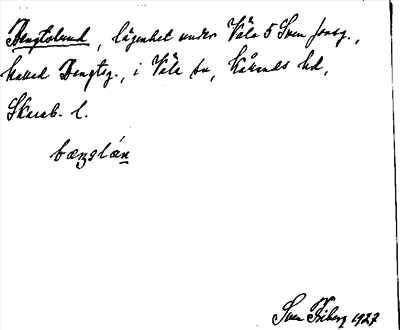 Bengtslund, lägenhet under Våla 5 Sven Jonsg.,
kallad Bengtsg., i Våla sn, Kåkinds hd,
Skarab. l.
bæŋslán
Sven Friberg 1927